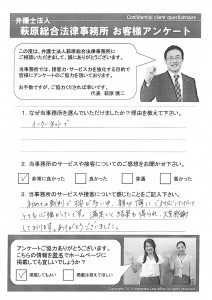 Confidential client questionnaire
弁護士法人
萩原総合法律事務所 お客様アンケート
この度は、弁護士法人萩原総合法律事務所に
ご相談いただきまして、誠にありがとうございます。
当事務所では、接客力・サービス力を強化する目的で
皆様にアンケートのご協力を頂いております。
お手数ですが、ご協力くだされば幸いです。
代表 萩原 慎二
1. なぜ当事務所を選んでいただけましたか?理由を教えて下さい。
インターネットで
2. 当事務所のサービスや接客についてのご感想をお聞かせ下さい。
非常に良かった 良かった 普通 悪かった
3. 当事務所のサービスや接客について感じたことをご記入下さい。
初めての
とても心強かったです。
しております。ありがとうございました。
アンケートご協力ありがとうございます。
こちらの用紙を匿名でホームページに
掲載しても宜しいでしょうか?
掲載してもよい 掲載は控えてほしい